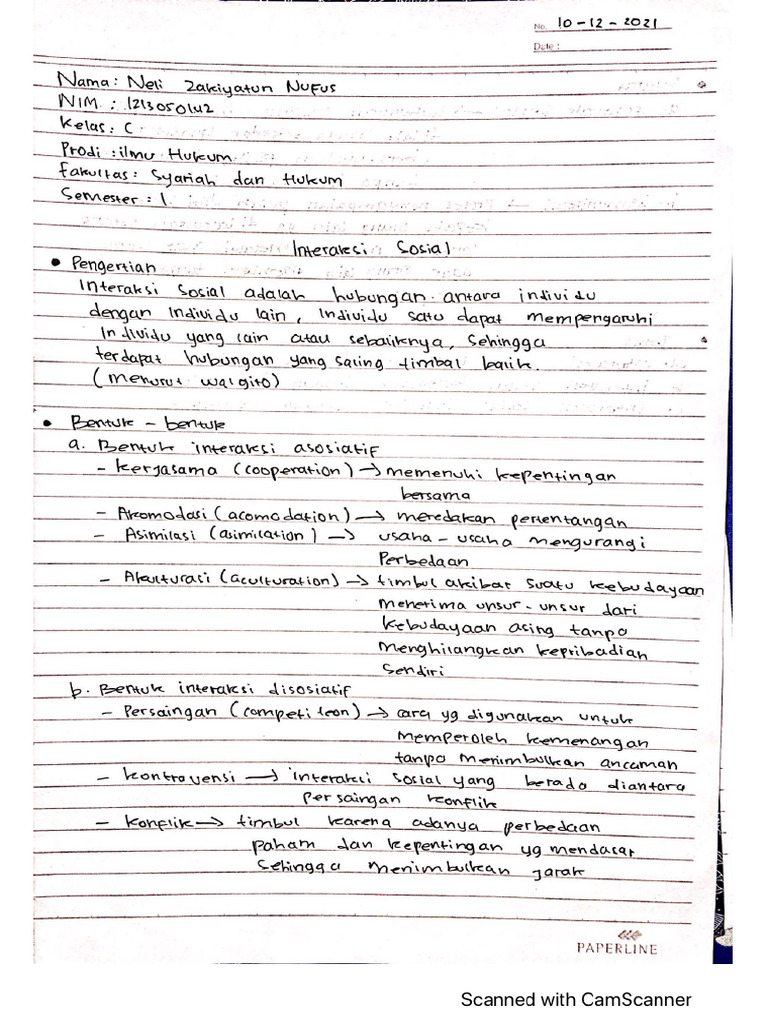 No. 10-12-2021
Date :
Nama : Neli Zakiyatun Nufus
NIM : 1213050142
Kelas : C
Prodi : ilmu Hukum
Fakultas : Syariah dan Hukum
Semester : 1
Interaksi Sosial
• Pengertian
Interaksi Sosial adalah hubungan antara individu
dengan individu lain, individu satu dapat mempengaruhi
individu yang lain atau sebaliknya, sehingga
terdapat hubungan yang saling timbal balik.
(menurut walgito)
• Bentuk - bentuk
a. Bentuk interaksi asosiatif
- kerjasama (cooperation) → memenuhi kepentingan
bersama
- Akomodasi (acomodation) → meredakan pertentangan
- Asimilasi (asimilation) → usaha - usaha mengurangi
Perbedaan
- Akulturasi (aculturation) → timbul akibat suatu kebudayaan
menerima unsur-unsur dari
kebudayaan asing tanpa
menghilangkan kepribadian
sendiri
b. Bentuk interaksi disosiatif
- Persaingan (competiteon) → cara yg digunakan untuk
memperoleh kemenangan
tanpa menimbulkan ancaman
- kontravensi → interaksi sosial yang berada diantara
persaingan konflik
- konflik → timbul karena adanya perbedaan
paham dan kepentingan yg mendasar
sehingga menimbulkan jarak
PAPERLINE
Scanned with CamScanner